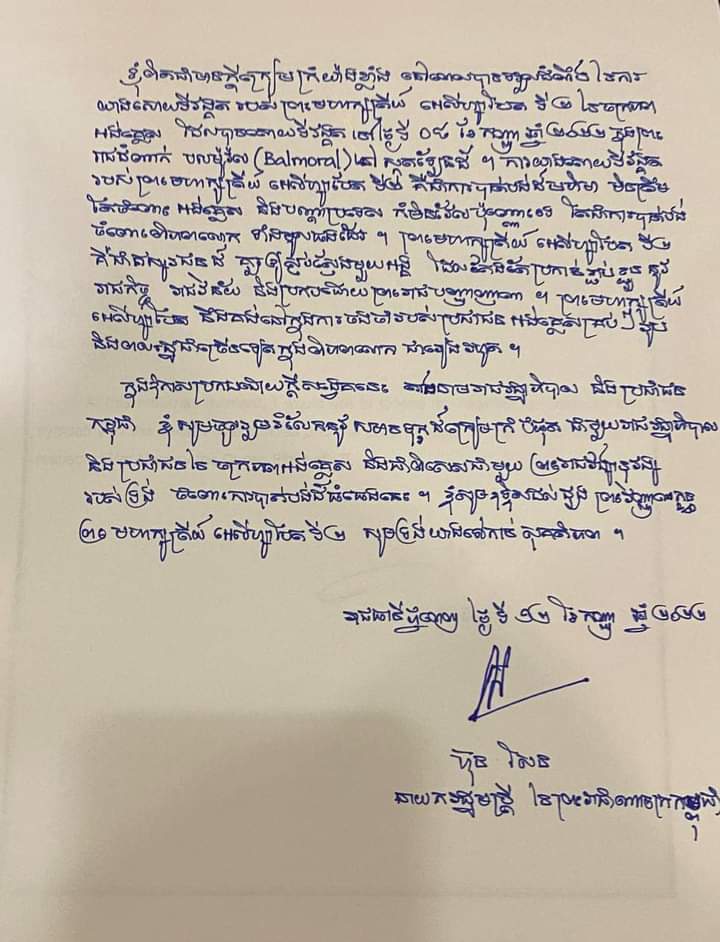 ខ្ញុំពិតជាមានក្តីក្រៀមក្រំយ៉ាងខ្លាំង នៅពេលបានទទួលដំណឹង នៃការ
យាងសោយទីវង្គត របស់ព្រះមហាក្សត្រីយ៍ អេលីហ្សាបែត ទី២ នៃចក្រភព
អង់គ្លេស ដែលបានសោយទីវង្គត នៅថ្ងៃទី ០៨ ខែ កញ្ញា ឆ្នាំ ២០២២ ក្នុងព្រះ
រាជដំណាក់ បលម៉ូរ៉ល (Balmoral) នៅ ស្កុតឡែនដ៍ ។ ការយាងសោយទីវង្គត
របស់ព្រះមហាក្សត្រីយ៍ អេលីហ្សាបែត ទី២ គឺជាការបាត់បង់ដ៏មហិមា មិនត្រឹម
តែចំពោះ អង់គ្លេស និងបណ្តាប្រទេស ក៏មិនវែល ប៉ុណ្ណោះទេ តែជាការបាត់បង់
ចំពោះពិភពលោក ទាំងមូលផងដែរ ។ ព្រះមហាក្សត្រីយ៍ អេលីហ្សាបែត ទី២
គឺជាឥស្សរជនដ៏ គួរឲ្យស្ងប់ស្ងែងមួយអង្គ ដែលតែងតែប្រកាន់ខ្ជាប់ខ្ជួន នូវ
រាជកិច្ច រាជវិន័យ និងប្រកបដោយព្រះរាជបញ្ញាញាណ ។ ព្រះមហាក្សត្រីយ៍
អេលីហ្សាបែត នឹងគង់នៅក្នុងការចងចាំរបស់ប្រជាជន អង់គ្លេសគ្រប់ៗរូប
និងពលរដ្ឋដ៏ច្រើនទៀតក្នុងពិភពលោក ជារៀងរហូត ។
ក្នុងឱកាសប្រកបដោយក្តីសង្វេគនេះ ក្នុងនាមរាជរដ្ឋាភិបាល និងប្រជាជន
កម្ពុជា ខ្ញុំសូមចូលរួមរំលែកនូវ សមានទុក្ខដ៏ក្រៀមក្រំបំផុត ជាមួយរាជរដ្ឋាភិបាល
និងប្រជាជននៃ ចក្រភពអង់គ្លេស និងជាពិសេសជាមួយ ព្រះរាជវង្សានុវង្ស
របស់ទ្រង់ ចំពោះការបាត់បង់ដ៏ធំធេងនេះ ។ ខ្ញុំសូមឧទ្ទិសដល់ដួង ព្រះវិញ្ញាណក្ខន្ធ
ព្រះមហាក្សត្រីយ៍ អេលីហ្សាបែត ទី២ សូមទ្រង់យាងទៅកាន់ សុគតិភព ។
រាជធានីភ្នំពេញ ថ្ងៃទី ១២ ខែ កញ្ញា ឆ្នាំ ២០២២
ហ៊ុន សែន
នាយករដ្ឋមន្ត្រី នៃព្រះរាជាណាចក្រកម្ពុជា